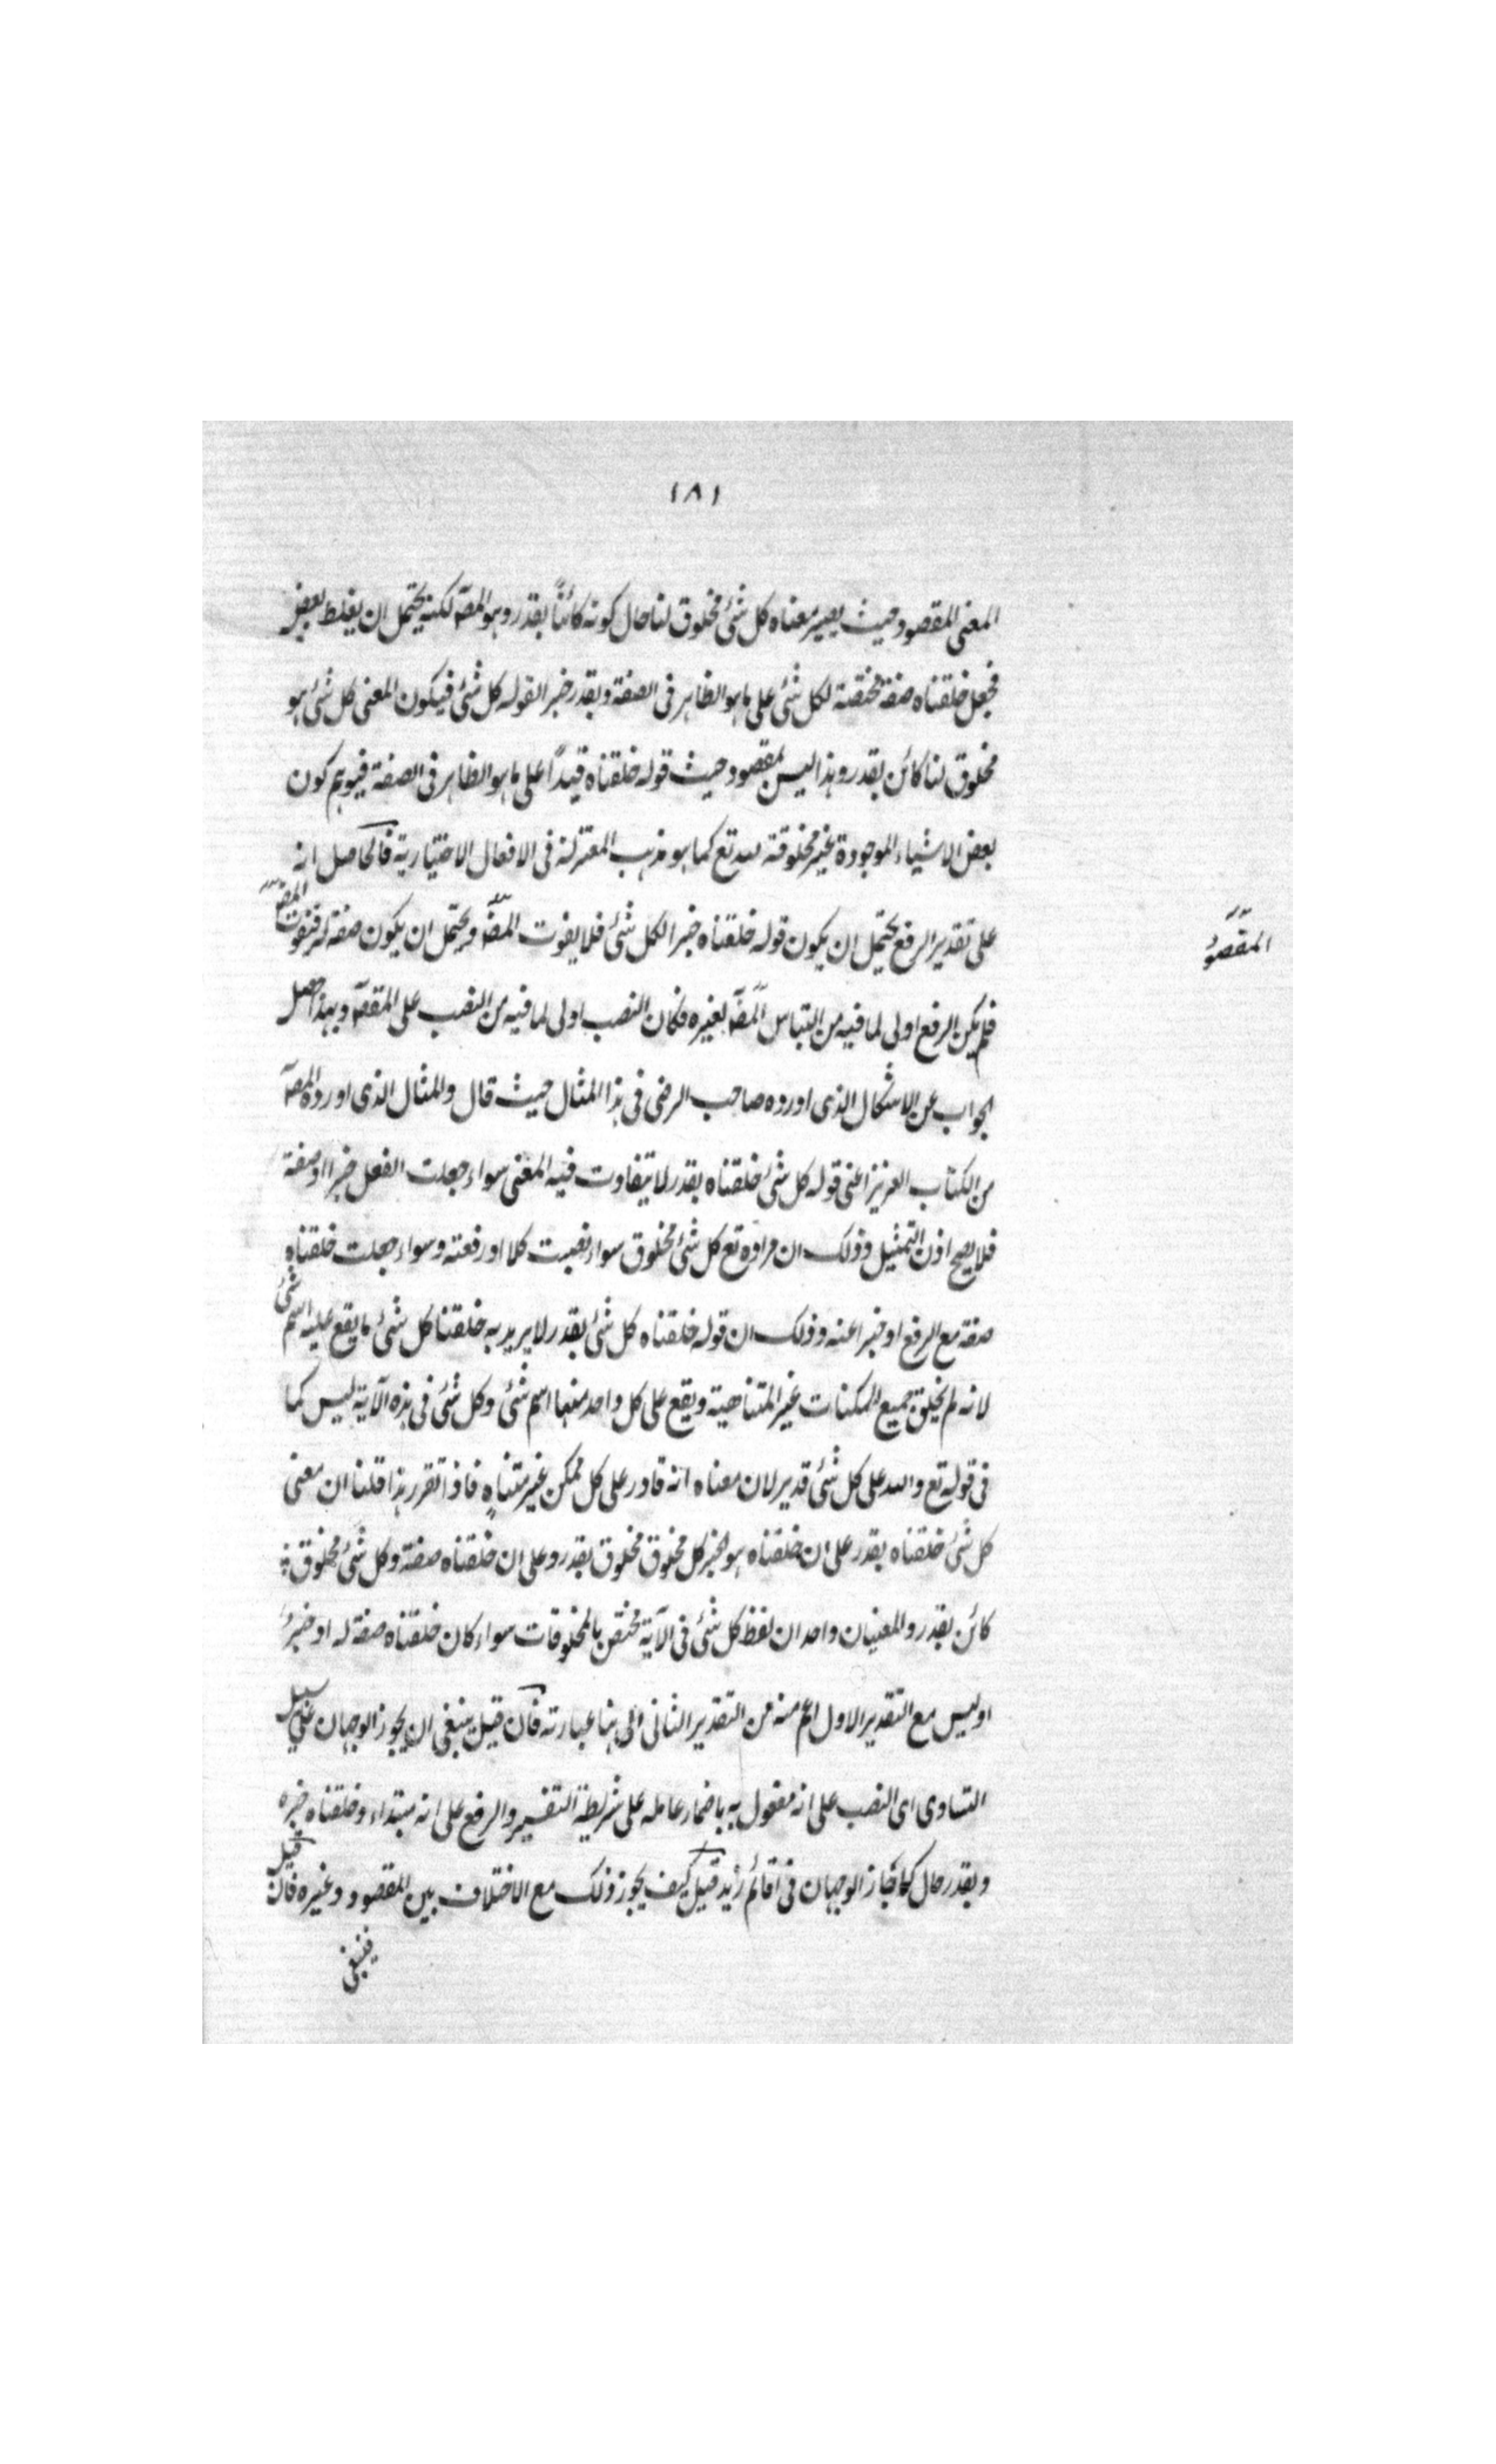 ١٨١
المعنى المقصود حيث يصير معناه كل شئ مخلوق لنا حال كونه كائناً بقدر وهو المقصـ لكنه يحتمل ان يغلط بعض
فجعل خلقناه صفة مخصصة لكل شئ على ما هو الظاهر فى الصفة وبقدر خبرا لقوله كل شئ فيكون المعنى كل شئ هو
مخلوق لنا كائن بقدر وهذا ليس بمقصود حيث قوله خلقناه قيداً على ما هو الظاهر فى الصفة فيوهم كون
بعض الاشياء الموجودة غير مخلوقة لله تع كما هو مذهب المعتزلة فى الافعال الاختيارية فالحاصل انه
على تقدير الرفع يحتمل ان يكون قوله خلقناه خبرا لكل شئ فلا يفوت المقصـ ويحتمل ان يكون صفة له فيفوت المقصـ
المقصود
فلم يكن الرفع اولى لما فيه من التباس المقصـ بغيره فكان النصب اولى لما فيه من النصب على المقصـ وبهذا حصل
الجواب عن الاشكال الذى اورده صاحب الرضى فى هذا المثال حيث قال والمثال الذى اورده المصـ
من الكتاب العزيز اعنى قوله كل شئ خلقناه بقدر لا يتفاوت فيه المعنى سواء جعلت الفعل خبرا او صفة
فلا يصح اذن التمثيل وذلك ان مراده تع كل شئ مخلوق سواء نصبت كلا او رفعته وسواء جعلت خلقناه
صفة مع الرفع او خبرا عنه وذلك ان قوله خلقناه كل شئ بقدر لا يريد به خلقنا كل شئ ما يقع عليه اسم شئ
لانه لم يخلق جميع الممكنات غير المتناهية ويقع على كل واحد منها اسم شئ وكل شئ فى هذه الآية ليس كما
فى قوله تع والله على كل شئ قدير لان معناه انه قادر على كل ممكن غير متناهٍ فاذا تقرر هذا قلنا ان معنى
كل شئ خلقناه بقدر على ان خلقناه هو الخبر كل مخلوق مخلوق بقدر وعلى ان خلقناه صفة وكل شئ مخلوق
كائن بقدر والمعنيان واحد ان لفظ كل شئ فى الآية مختص بالمخلوقات سواء كان خلقناه صفة له او خبرً
او ليس مع التقدير الاول اعم منه من التقدير الثانى الى هنا عبارته فان قيل ينبغى ان يجوز الوجهان على سبيل
التساوى اى النصب على انه مفعول به باضمار عامله على شريطة التفسير والرفع على انه مبتداء وخلقناه خبره
وبقدر حال كما جاز الوجهان فى اقائم زيد قيل كيف يجوز ذلك مع الاختلاف بين المقصود وغيره فان قيل
فينبغى